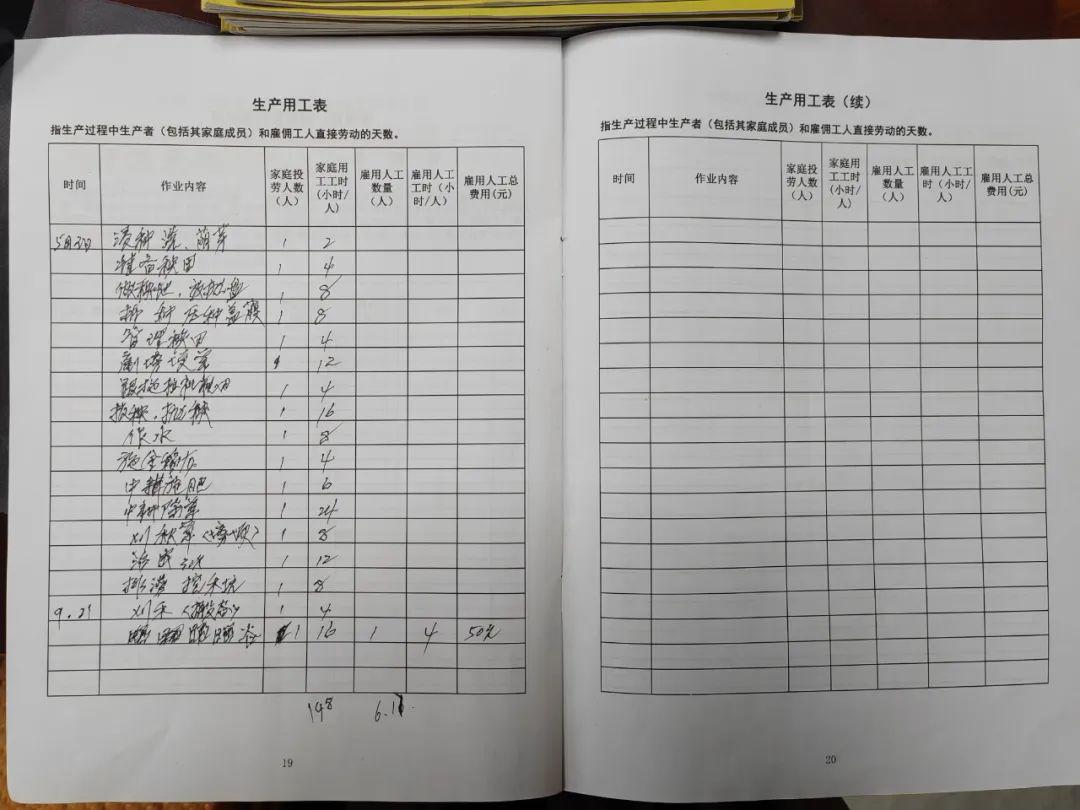 生产用工表
指生产过程中生产者（包括其家庭成员）和雇佣工人直接劳动的天数。
时间 作业内容 家庭投劳人数（人） 家庭用工工时(小时/人) 雇用人工数量（人） 雇用人工工时（小时/人） 雇用人工总费用(元)
5月3日 浸种 洗、萌芽 1 2
秧田 1 4
做秧地, 1 8
压种盖膜 1 8
管理秧田 1 4
12
1 4
拔秧, 秧 1 16
作水 1 8
1 4
中耕施肥 1 6
中耕除草 1 24
刈秋草 1 8
1 12
1 8
9.21 刈禾 1 4
晒谷 1 16 1 4 50元
148 6.11.
19
生产用工表（续）
指生产过程中生产者（包括其家庭成员）和雇佣工人直接劳动的天数。
时间 作业内容 家庭投劳人数（人） 家庭用工工时(小时/人) 雇用人工数量（人） 雇用人工工时（小时/人） 雇用人工总费用(元)
20